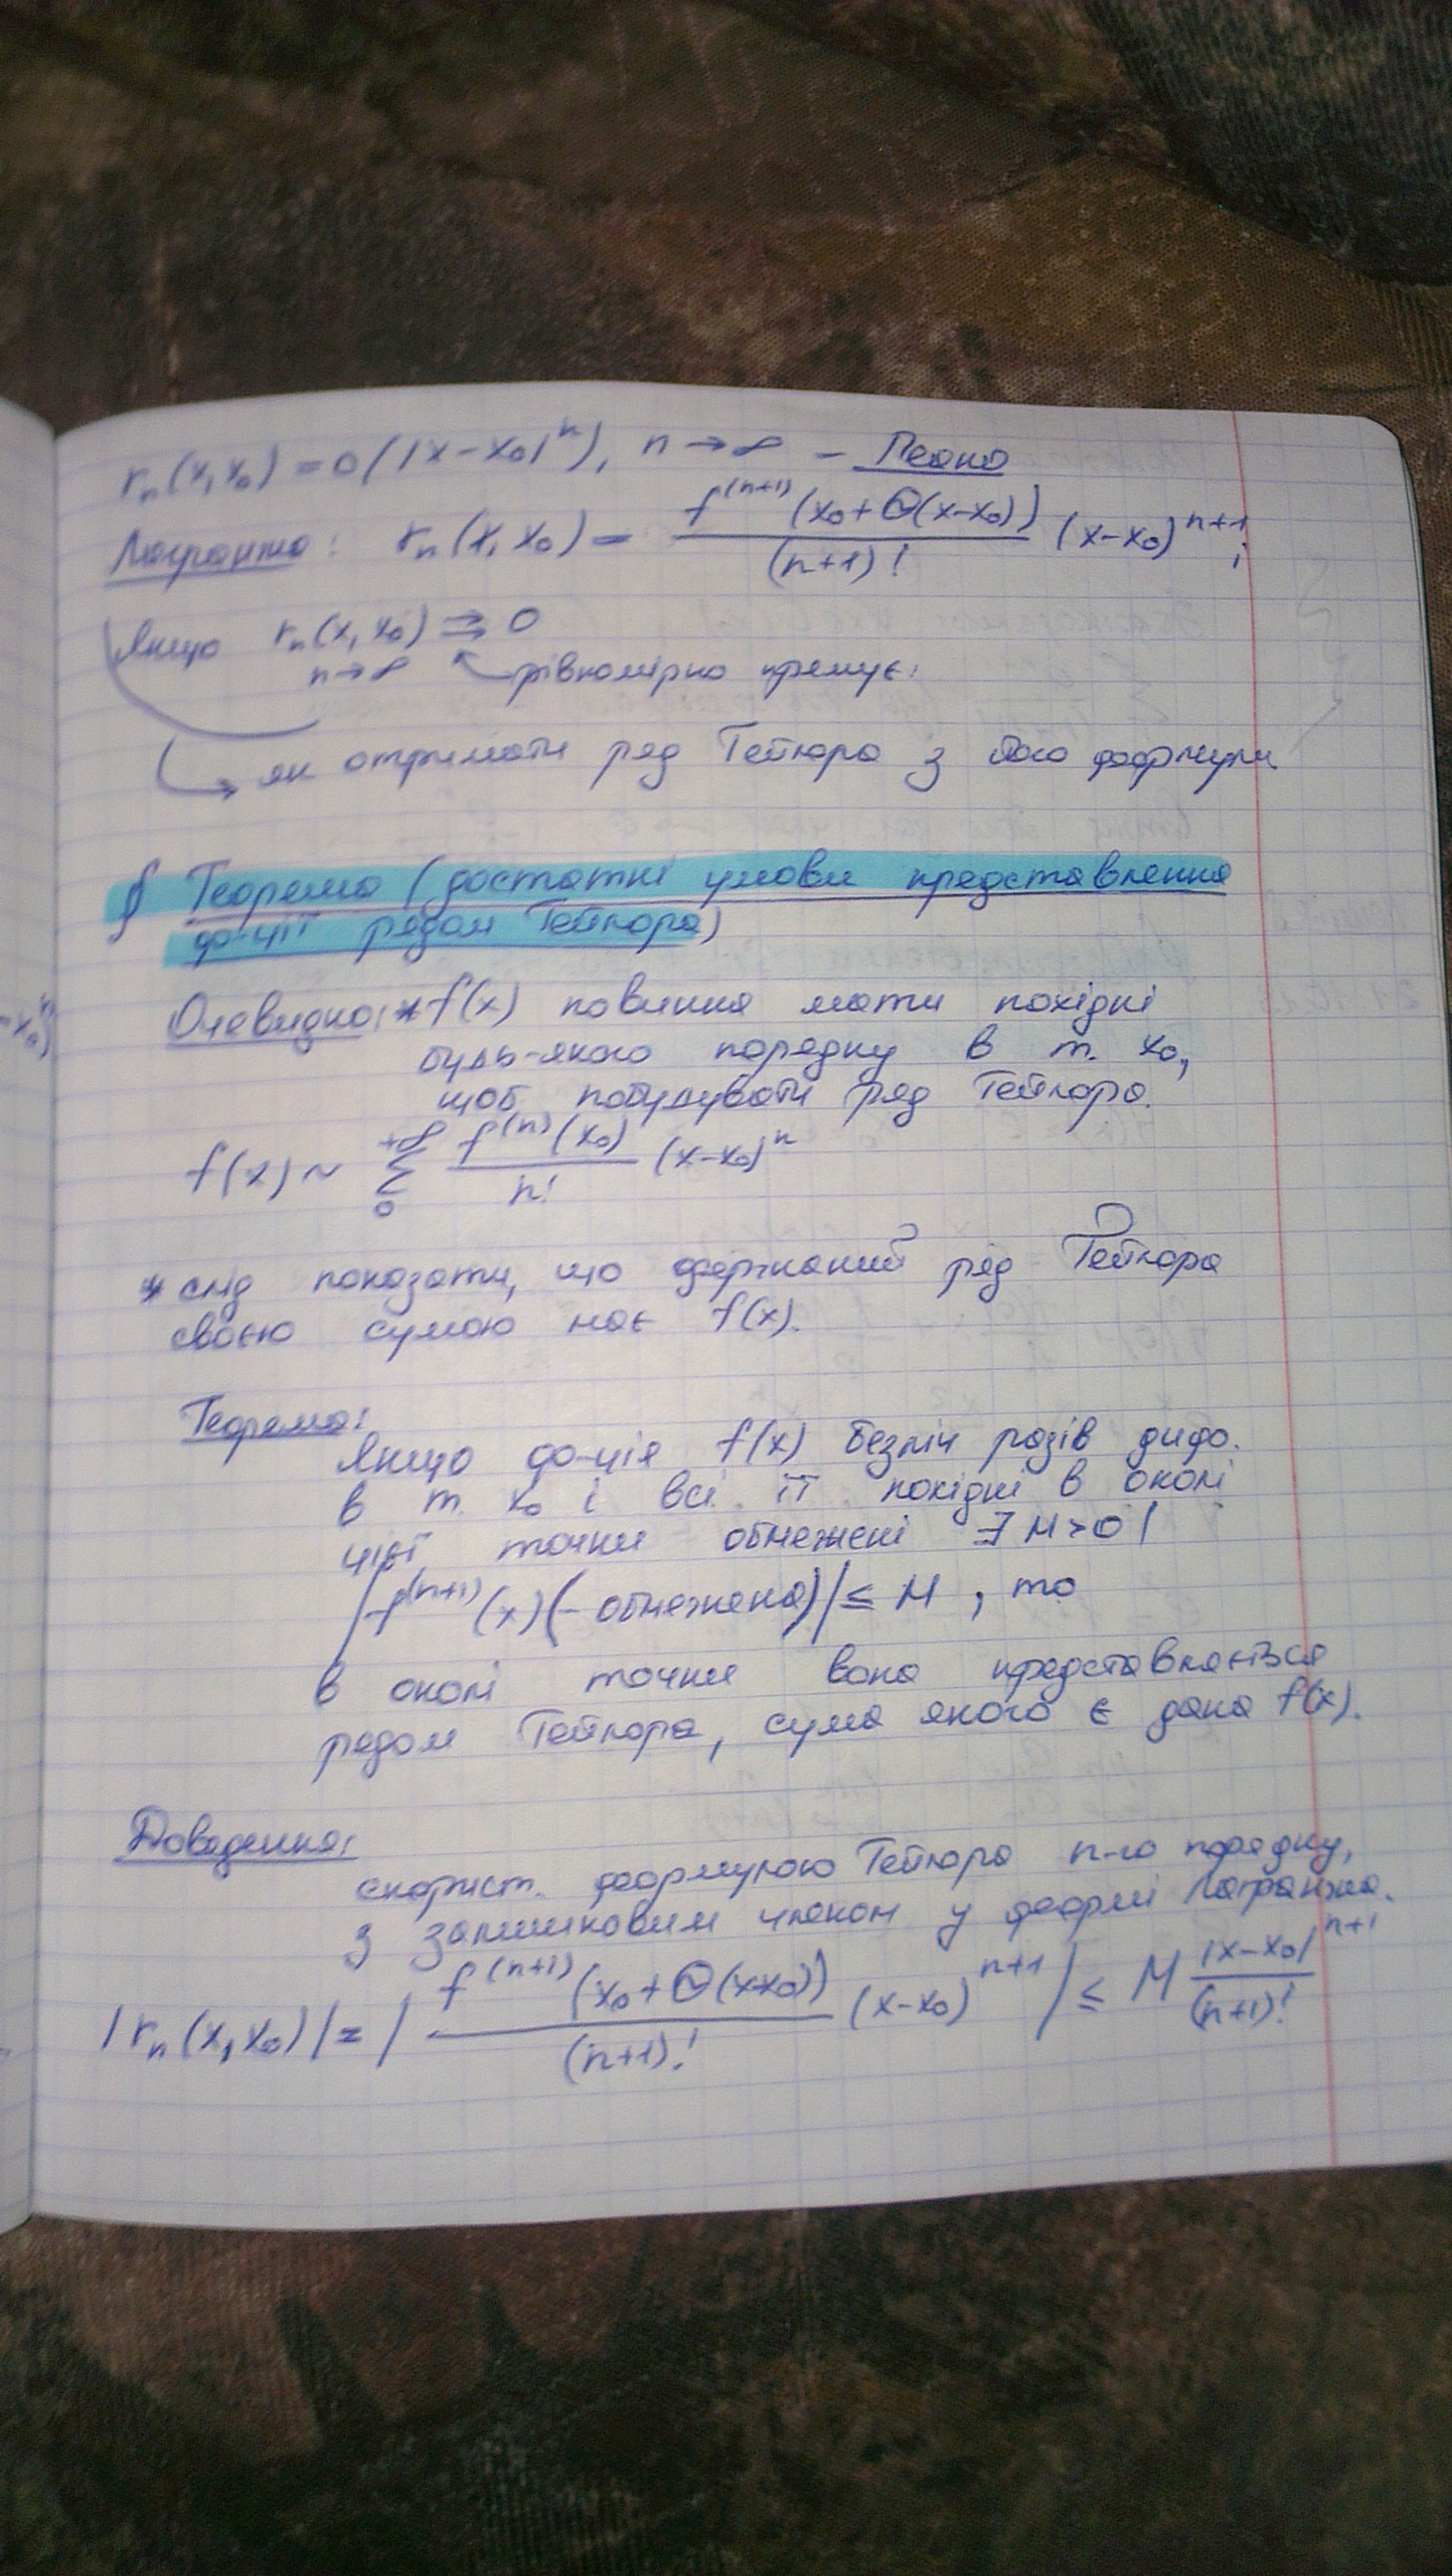 rₙ(x, x₀) = o(|x-x₀|ⁿ), n → ∞ – Пеано
Лагранжа: rₙ(x, x₀) = f⁽ⁿ⁺¹⁾(x₀+Θ(x-x₀)) / (n+1)! (x-x₀)ⁿ⁺¹;
Якщо rₙ(x, x₀) ⇉ 0
n→∞ рівномірно прямує.
як отримати ряд Тейлора з його формули
§ Теорема (достатні умови представлення
ф-ції рядом Тейлора)
Очевидно: * f(x) повинна мати похідні
будь-якого порядку в т. x₀,
щоб побудувати ряд Тейлора.
f(x) ~ +∞ Σ 0 f⁽ⁿ⁾(x₀) / n! (x-x₀)ⁿ
* слід показати, що одержаний ряд Тейлора
своєю сумою має f(x).
Теорема:
Якщо ф-ція f(x) безліч разів диф.
в т. x₀ і всі її похідні в околі
цієї точки обмежені ∃ M>0 |
|f⁽ⁿ⁺¹⁾(x) (- обмежена)| ≤ M , то
в околі точки вона представляється
рядом Тейлора, сума якого є дана f(x).
Доведення:
скорист. формулою Тейлора n-го порядку,
з залишковим членом у формі Лагранжа.
|rₙ(x, x₀)| = | f⁽ⁿ⁺¹⁾(x₀+Θ(x-x₀)) / (n+1)! (x-x₀)ⁿ⁺¹ | ≤ M |x-x₀|ⁿ⁺¹ / (n+1)!